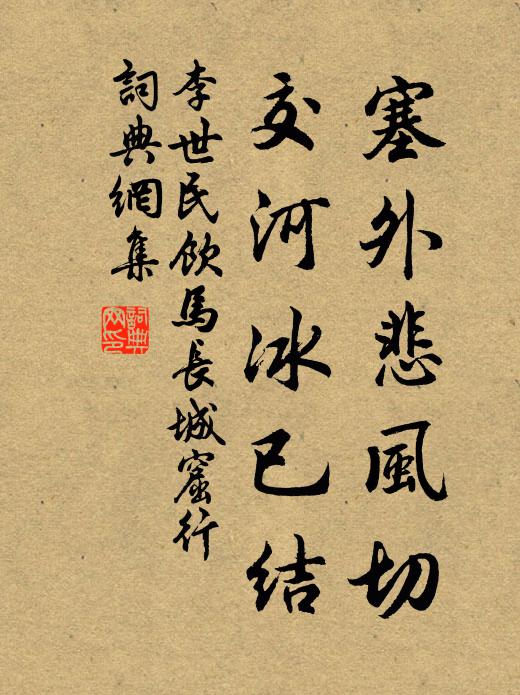 塞外悲風切
交河冰已結
李世民飲馬長城窟行
詞典網集
詞典網印